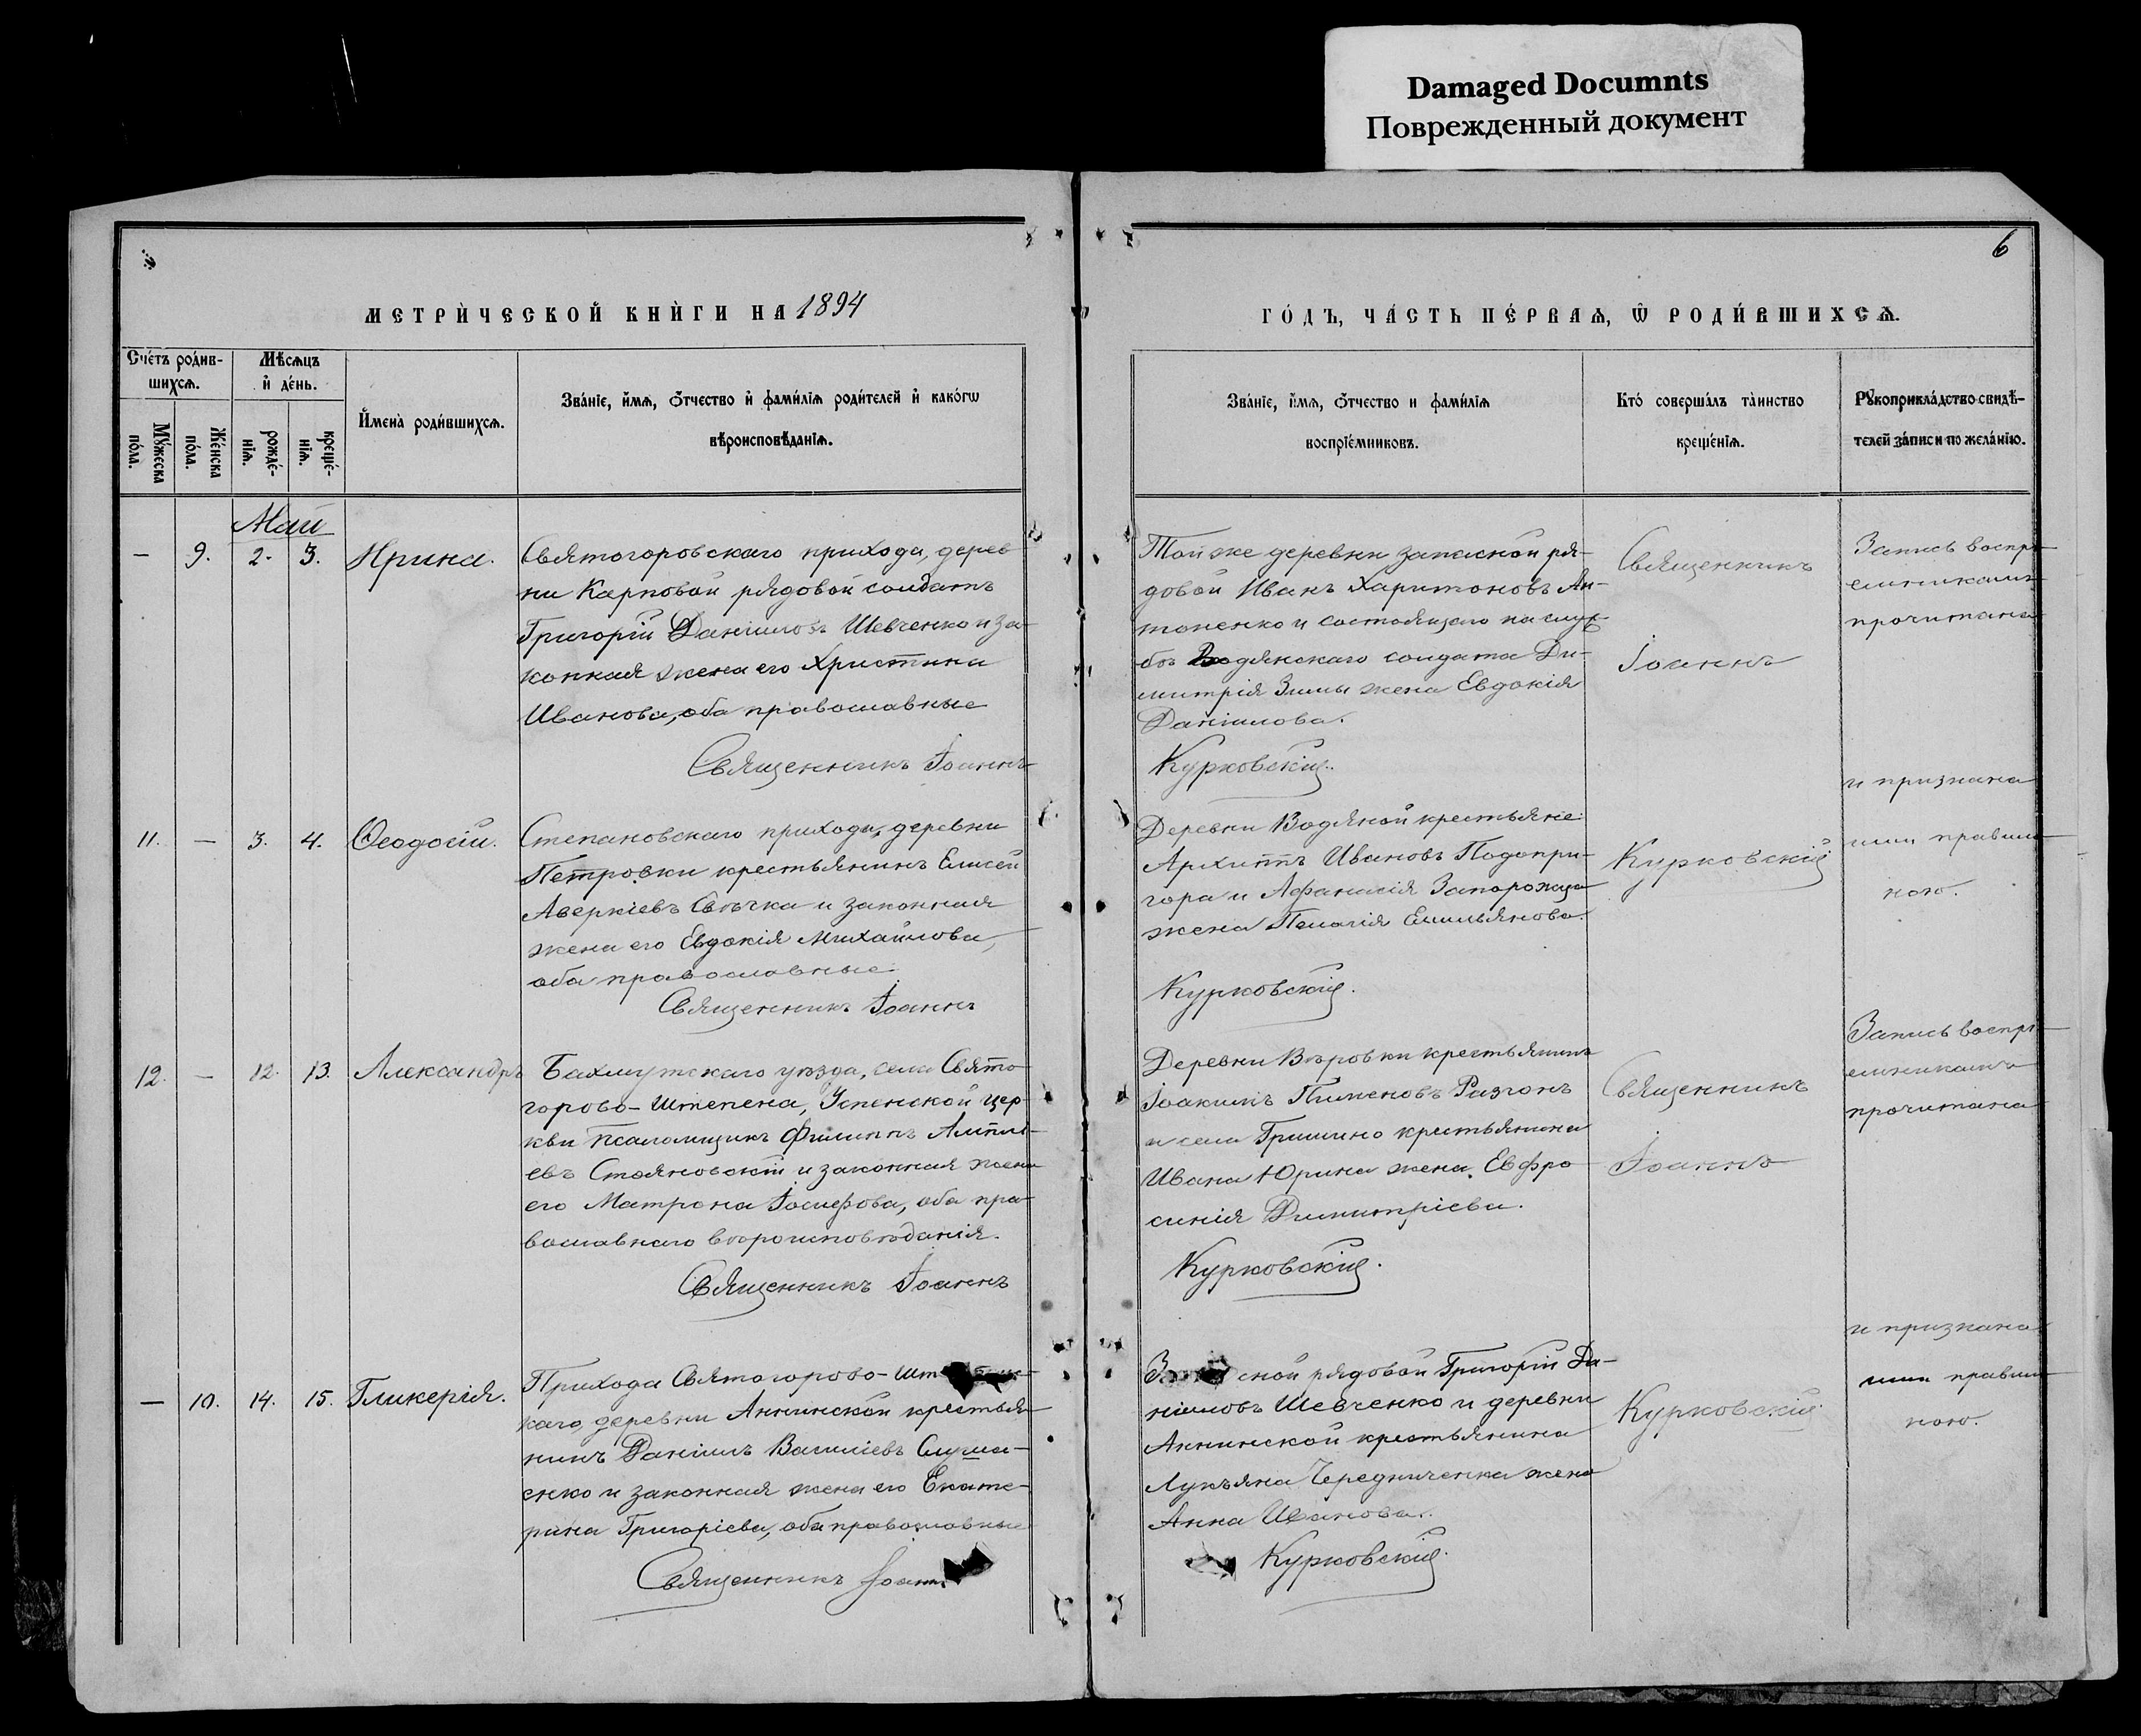 Damaged Documnts
Поврежденный документ
6
МЕТРИ́ЧЕСКОЙ КНИ́ГИ НА 1894
ГО́ДЪ, ЧА́СТЬ ПЕ́РВАѦ, Ѡ҃ РОДИ́ВШИХСѦ.
Сче́тъ роди́в-
шихсѧ.
Мꙋ́жеска
по́ла.
Же́нска
по́ла.
Мѣ́сѧцъ
и҆ де́нь.
рожде́-
нїѧ.
креще́-
нїѧ.
И҆мена̀ роди́вшихсѧ.
Зва́нїе, и҆́мѧ, ѻ҆́тчество и҆ фами́лїѧ роди́телей и҆ како́гѡ
вѣроисповѣ́данїѧ.
Зва́нїе, и҆́мѧ, ѻ҆́тчество и фами́лїѧ
воспрїе́мниковъ.
Кто́ соверша́лъ та̀инство
креще́нїѧ.
Рꙋкоприкла́дство свидѣ́-
телей за́писи по жела́нїю.
Май
— 9. 2. 3. Ирина.
Святогоровскаго прихода, дерев
ни Карповой рядовой солдатъ
Григорій Даніиловъ Шевченко и за-
конная жена его Христина
Иванова, оба православные
Священникъ Іоаннъ
Той же деревни запасной ря-
довой Иванъ Харитоновъ Ан-
тоненко и состоящаго на служ-
бѣ Водянскаго солдата Ди-
митрія Зимы жена Евдокія
Даніилова.
Курковскій.
Священникъ
Іоаннъ
Запись воспрі-
емниками
прочитана
и признана
11. — 3. 4. Ѳеодосій.
Степановскаго прихода, деревни
Петровки крестьянинъ Елисей
Аверкіевъ Свѣчка и законная
жена его Евдокія Михайлова,
оба православные.
Священникъ Іоаннъ
Деревни Водяной крестьяне:
Архиппъ Ивановъ Подопри-
гора и Афанасія Запорожца
жена Пелагія Емильянова.
Курковскій.
Курковскій
ими правиль-
ною.
12. — 12. 13. Александръ
Бахмутскаго уѣзда, села Свято-
горово-Штепена, Успенской цер-
кви псаломщикъ Филиппъ Ампліев-
евъ Стояновскій и законная жена
его Матрона Іосифова, оба пра-
вославнаго вѣроисповѣданія.
Священникъ Іоаннъ
Деревни Вѣровки крестьянинъ
Іоакимъ Пименовъ Разгонъ
и села Гришино крестьянина
Ивана Юрина жена Евфро-
синія Димитріева.
Курковскій.
Священникъ
Іоаннъ
Запись воспрі-
емниками
прочитана
и признана
— 10. 14. 15. Гликерія.
Прихода Святогорово-
каго, деревни Аннинской крестья-
нинъ Даніилъ Василіевъ
енко и законная жена его Екате-
рина Григоріева, оба православные
Священникъ Іоанн
сной рядовой Григорій Да-
ніиловъ Шевченко и деревни
Аннинской крестьянина
Лукьяна Чередниченка жена
Анна Иванова.
Курковскій.
Курковскій.
ими правиль-
ною.